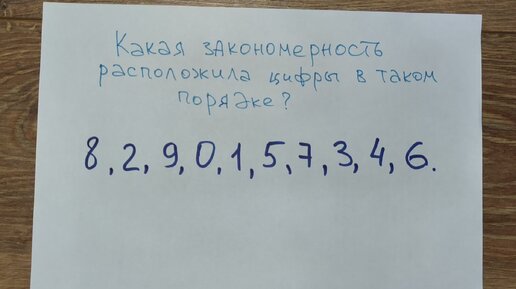 Какая закономерность
расположила цифры в таком
порядке?
8, 2, 9, 0, 1, 5, 7, 3, 4, 6.